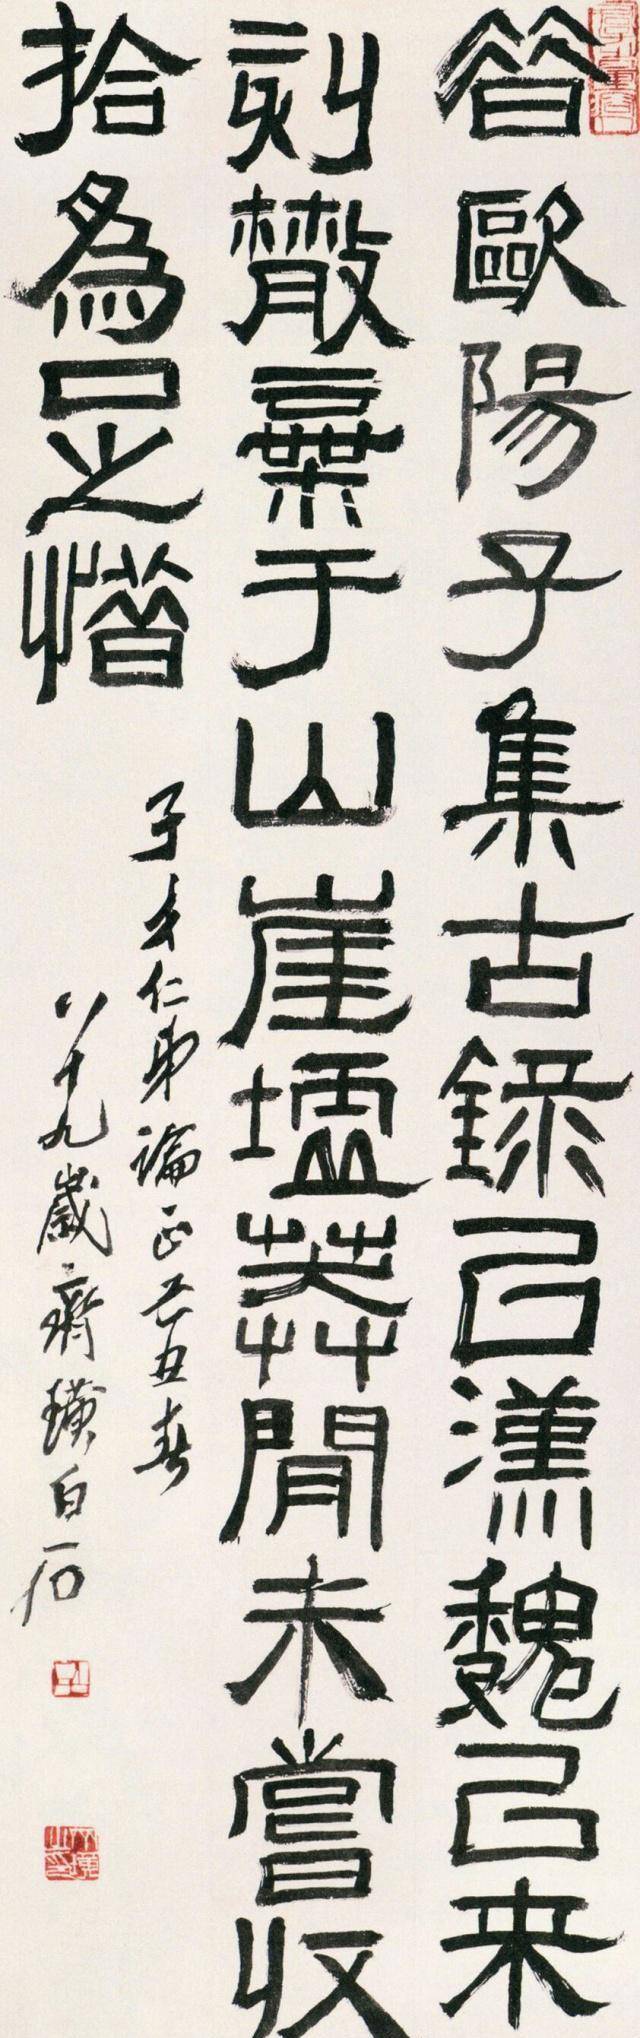 昔歐陽子集古錄㠯漢魏㠯来
刻散棄于山崖墟莽間未嘗收
拾為足惜
子仁弟論正己丑春
八十九歲齊璜白石